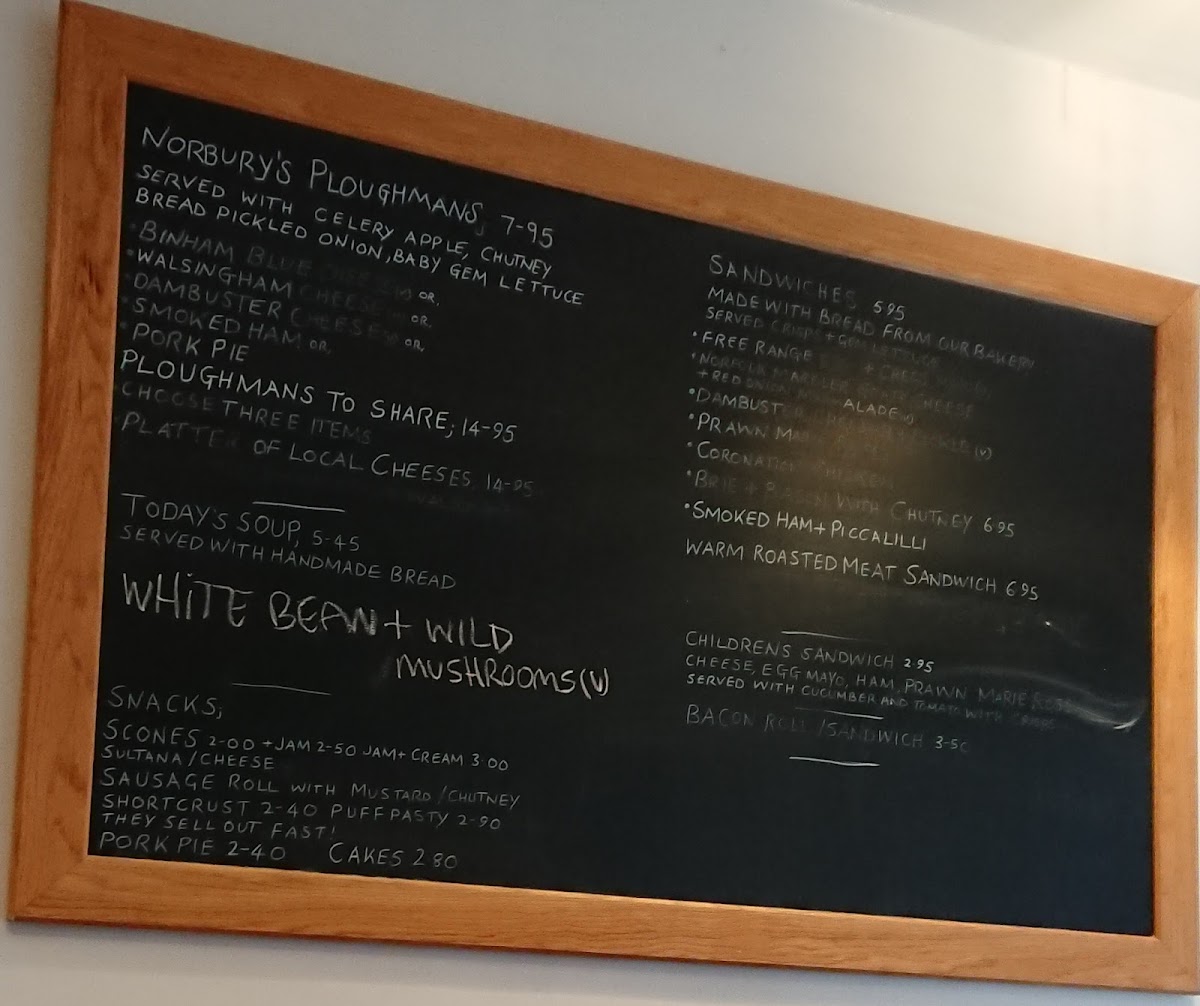 NORBURY'S PLOUGHMANS, 7-95
SERVED WITH CELERY APPLE, CHUTNEY
BREAD PICKLED ONION, BABY GEM LETTUCE
•BINHAM BLUE CHEESE(V) OR,
•WALSINGHAM CHEESE OR,
•DAMBUSTER CHEESE(V) OR,
•SMOKED HAM OR,
•PORK PIE
PLOUGHMANS TO SHARE, 14-95
•CHOOSE THREE ITEMS
•PLATTER OF LOCAL CHEESES 14-95
TODAY'S SOUP, 5-45
SERVED WITH HANDMADE BREAD
WHITE BEAN + WILD
MUSHROOMS (V)
SNACKS;
SCONES 2-00 + JAM 2-50 JAM + CREAM 3.00
SULTANA / CHEESE
SAUSAGE ROLL WITH MUSTARD / CHUTNEY
SHORTCRUST 2-40 PUFF PASTY 2-90
THEY SELL OUT FAST!
PORK PIE 2-40 CAKES 2 80
SANDWICHES 5 95
MADE WITH BREAD FROM OUR BAKERY
SERVED CRISPS + GEM LETTUCE
•FREE RANGE + CRESS
•NORFOLK CHEESE
+ RED ONION ALADE (V)
•DAMBUSTER (V)
•PRAWN
•CORONATION CHICKEN
•BRIE + WITH CHUTNEY 6 95
•SMOKED HAM + PICCALILLI
WARM ROASTED MEAT SANDWICH 6 95
CHILDRENS SANDWICH 2.95
CHEESE, EGG MAYO, HAM, PRAWN MARIE ROSE
SERVED WITH CUCUMBER AND TOMATO WITH CRISPS
BACON ROLL / SANDWICH 3-50